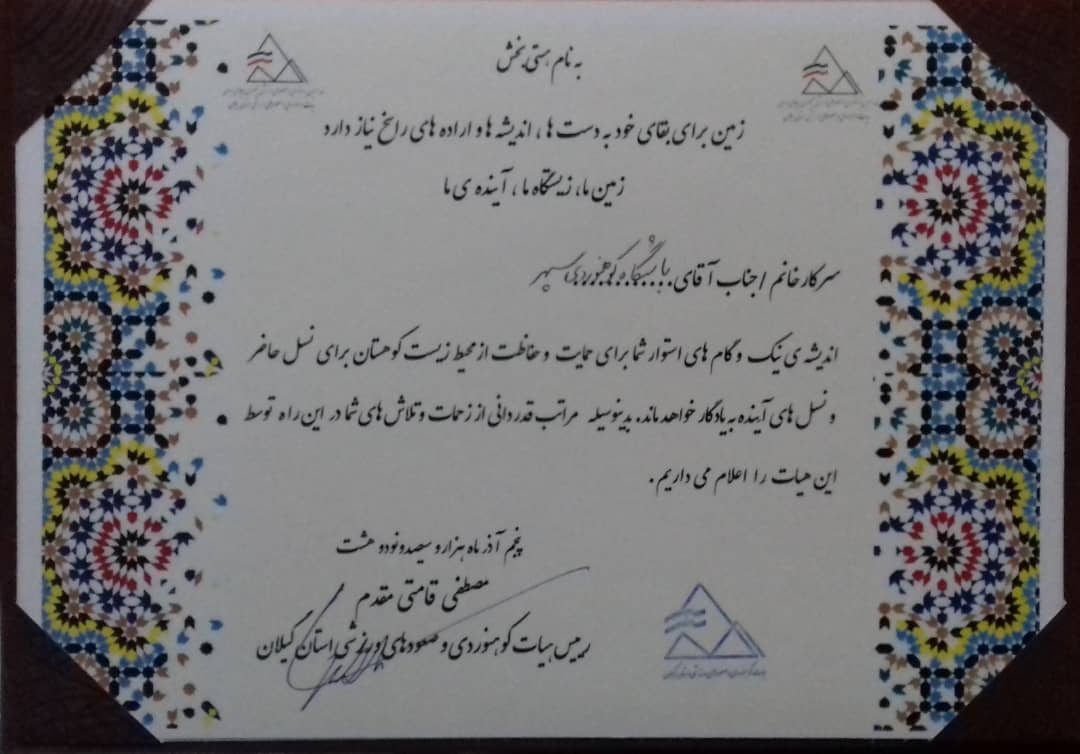 به نام هستی بخش
زمین برای بقای خود به دست ها، اندیشه ها و اراده های راسخ نیاز دارد
زمین ما، زیستگاه ما، آینده ی ما
سرکار خانم / جناب آقای. باشگاه کوهنوردی سپهر
اندیشه ی نیک و گام های استوار شما برای حمایت و حفاظت از محیط زیست کوهستان برای نسل حاضر
و نسل های آینده به یادگار خواهد ماند. بدینوسیله مراتب قدردانی از زحمات و تلاش های شما در این راه توسط
این هیات را اعلام می داریم.
پنجم آذر ماه هزار و سیصد و نود و هشت
مصطفی قامتی مقدم
رییس هیات کوهنوردی و صعودهای ورزشی استان گیلان